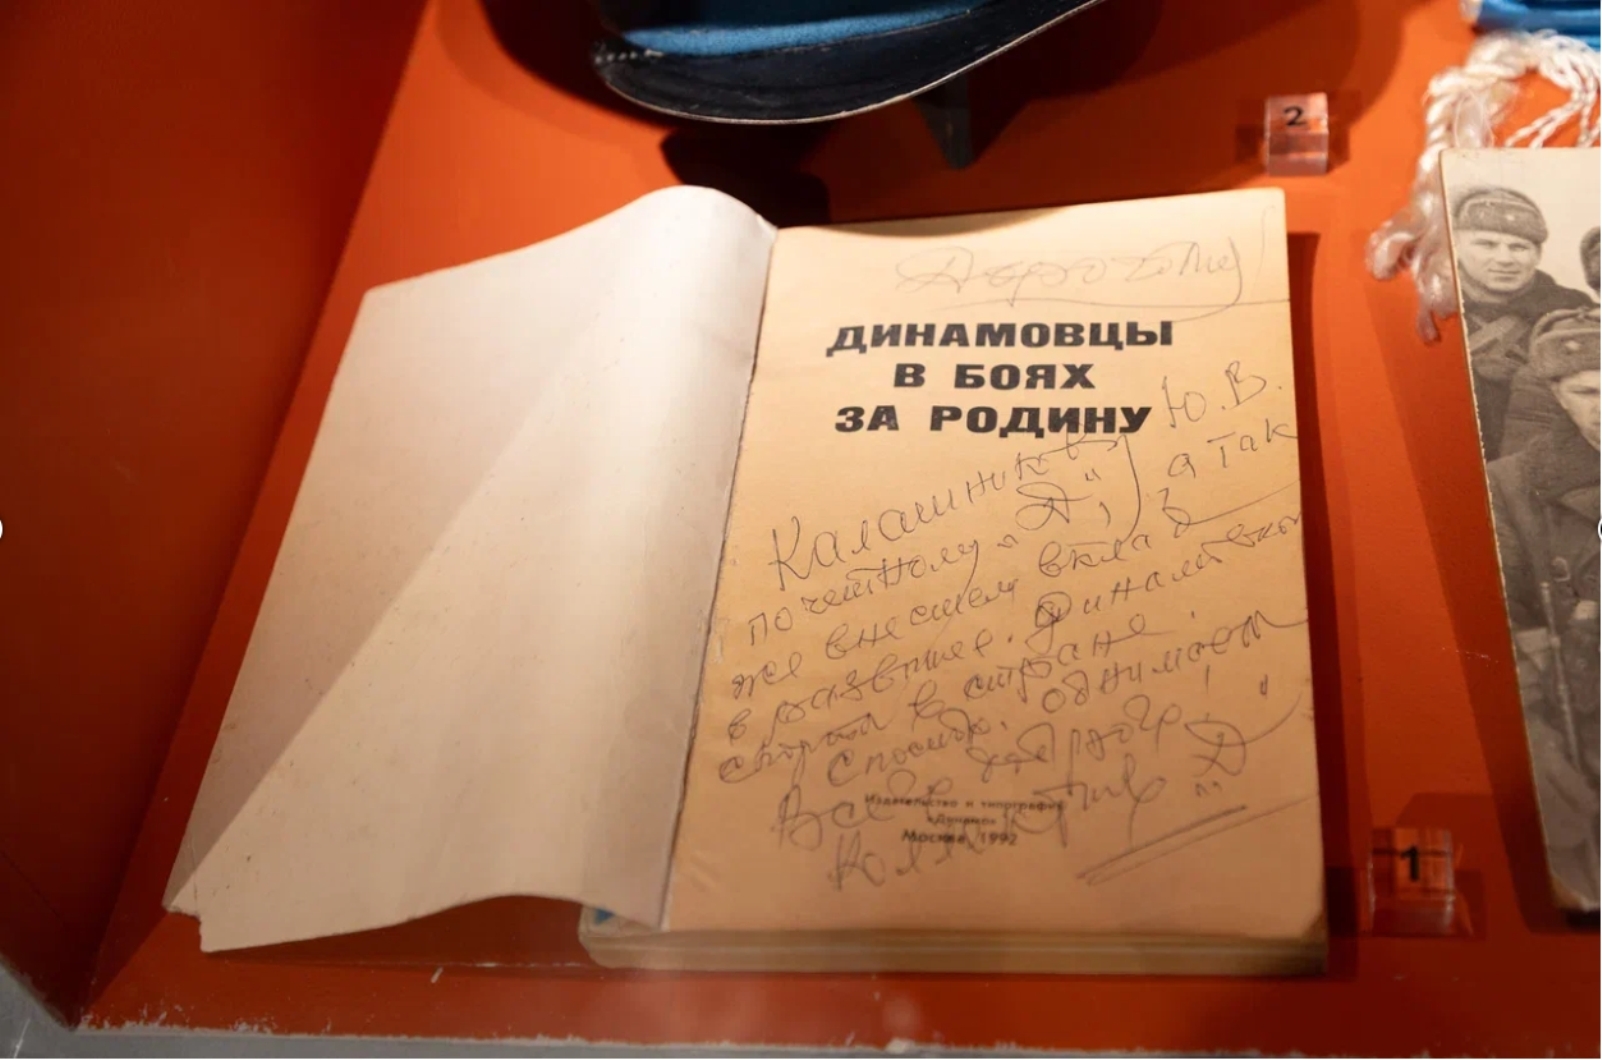 2
Дорогому
ДИНАМОВЦЫ
В БОЯХ
ЗА РОДИНУ
Калашникову Ю.В.
почетному „Д“, а так
же внесшем вклад
в развитие Динамовского
спорта в стране.
Спасибо.
Всего доброго!
Издательство и типография
«Динамо»
Москва, 1992
Коллектив „Д“
1